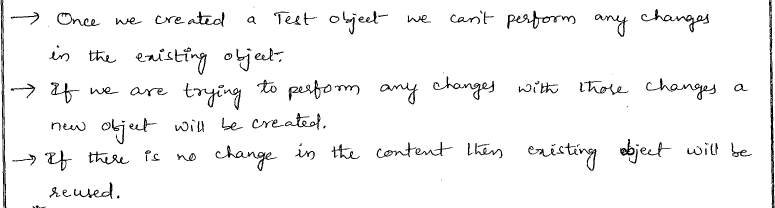 → Once we created a Test object we can't perform any changes
in the existing object.
→ If we are trying to perform any changes with those changes a
new object will be created.
→ If there is no change in the content then existing object will be
reused.